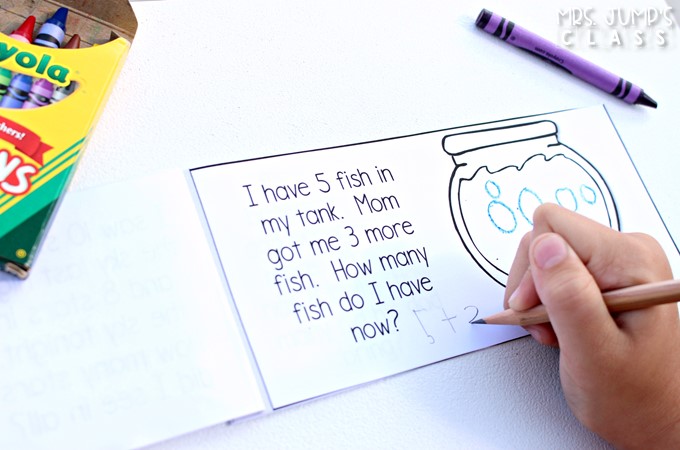 MRS. JUMP'S
CLASS
yola
chers!
NS
I have 5 fish in
my tank. Mom
got me 3 more
fish. How many
fish do I have
now? 5+3